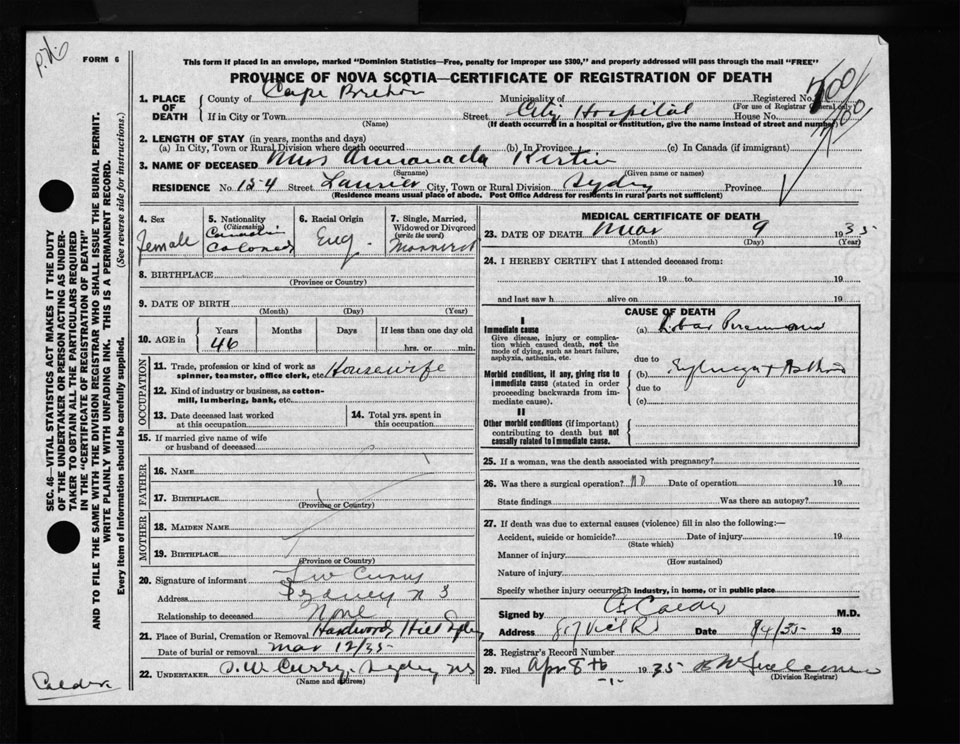 FORM 6
This form if placed in an envelope, marked "Dominion Statistics—Free, penalty for improper use $300," and properly addressed will pass through the mail "FREE"
PROVINCE OF NOVA SCOTIA—CERTIFICATE OF REGISTRATION OF DEATH
1. PLACE OF DEATH
County of Cape Breton Municipality of Registered No.
(For use of Registrar General only)
If in City or Town Street City Hospital House No.
(Name) (If death occurred in a hospital or institution, give the name instead of street and number)
2. LENGTH OF STAY (in years, months and days)
(a) In City, Town or Rural Division where death occurred (b) In Province (c) In Canada (if immigrant)
3. NAME OF DECEASED Mrs Kirtin
(Surname) (Given name or names)
RESIDENCE No. 154 Street Laurier City, Town or Rural Division Sydney Province
(Residence means usual place of abode. Post Office Address for residents in rural parts not sufficient)
4. Sex
female
5. Nationality
(Citizenship)
Colored
6. Racial Origin
Eng.
7. Single, Married, Widowed or Divorced
(write the word)
8. BIRTHPLACE
(Province or Country)
9. DATE OF BIRTH
(Month) (Day) (Year)
10. AGE in Years Months Days If less than one day old
46 hrs. or min.
OCCUPATION
11. Trade, profession or kind of work as spinner, teamster, office clerk, etc. Housewife
12. Kind of industry or business, as cotton-mill, lumbering, bank, etc.
13. Date deceased last worked at this occupation
14. Total yrs. spent in this occupation
15. If married give name of wife or husband of deceased
FATHER
16. NAME
17. BIRTHPLACE
(Province or Country)
MOTHER
18. MAIDEN NAME
19. BIRTHPLACE
(Province or Country)
20. Signature of informant W Curry
Address Sydney N S
Relationship to deceased None
21. Place of Burial, Cremation or Removal Hardwood Hill Sydney
Date of burial or removal Mar 12/35
22. UNDERTAKER W Curry. Sydney NS
(Name and address)
MEDICAL CERTIFICATE OF DEATH
23. DATE OF DEATH Mar 9 1935
(Month) (Day) (Year)
24. I HEREBY CERTIFY that I attended deceased from:
19 to 19
and last saw h alive on 19
CAUSE OF DEATH
I
Immediate cause
Give disease, injury or complication which caused death, not the mode of dying, such as heart failure, asphyxia, asthenia, etc.
(a) Lobar Pneumonia
due to
Morbid conditions, if any, giving rise to immediate cause (stated in order proceeding backwards from immediate cause).
(b)
due to
(c)
II
Other morbid conditions (if important) contributing to death but not causally related to immediate cause.
25. If a woman, was the death associated with pregnancy?
26. Was there a surgical operation? no Date of operation 19
State findings Was there an autopsy?
27. If death was due to external causes (violence) fill in also the following:—
Accident, suicide or homicide? Date of injury 19
(State which)
Manner of injury
(How sustained)
Nature of injury
Specify whether injury occurred in industry, in home, or in public place
Signed by Calder M.D.
Address Date 19
28. Registrar's Record Number
29. Filed Apr 8th 1935
-1-
(Division Registrar)
SEC. 46—VITAL STATISTICS ACT MAKES IT THE DUTY OF THE UNDERTAKER OR PERSON ACTING AS UNDERTAKER TO OBTAIN ALL THE PARTICULARS REQUIRED IN THE "CERTIFICATE OF REGISTRATION OF DEATH"
AND TO FILE THE SAME WITH THE DIVISION REGISTRAR WHO SHALL ISSUE THE BURIAL PERMIT.
WRITE PLAINLY WITH UNFADING INK. THIS IS A PERMANENT RECORD.
Every item of information should be carefully supplied. (See reverse side for instructions.)
Calder